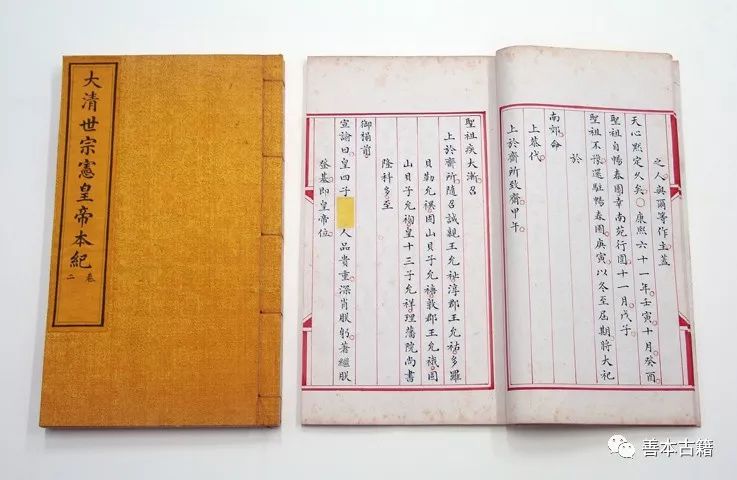 大清世宗憲皇帝本紀
卷二
之人與爾等作主蓋
天心默定久矣○康熙六十一年壬寅十月癸酉
聖祖自暢春園幸南苑行圍十一月戊子
聖祖不豫還駐暢春園庚寅以冬至屆期將大祀
於
南郊命
上恭代
上於齋所致齋甲午
聖祖疾大漸召
上於齋所隨召誠親王允祉淳郡王允祐多羅
貝勒允禩固山貝子允禟敦郡王允䄉固
山貝子允祹皇十三子允祥理藩院尚書
隆科多至
御榻前
宣諭曰皇四子 人品貴重深肖朕躬著繼朕
登基即皇帝位
善本古籍